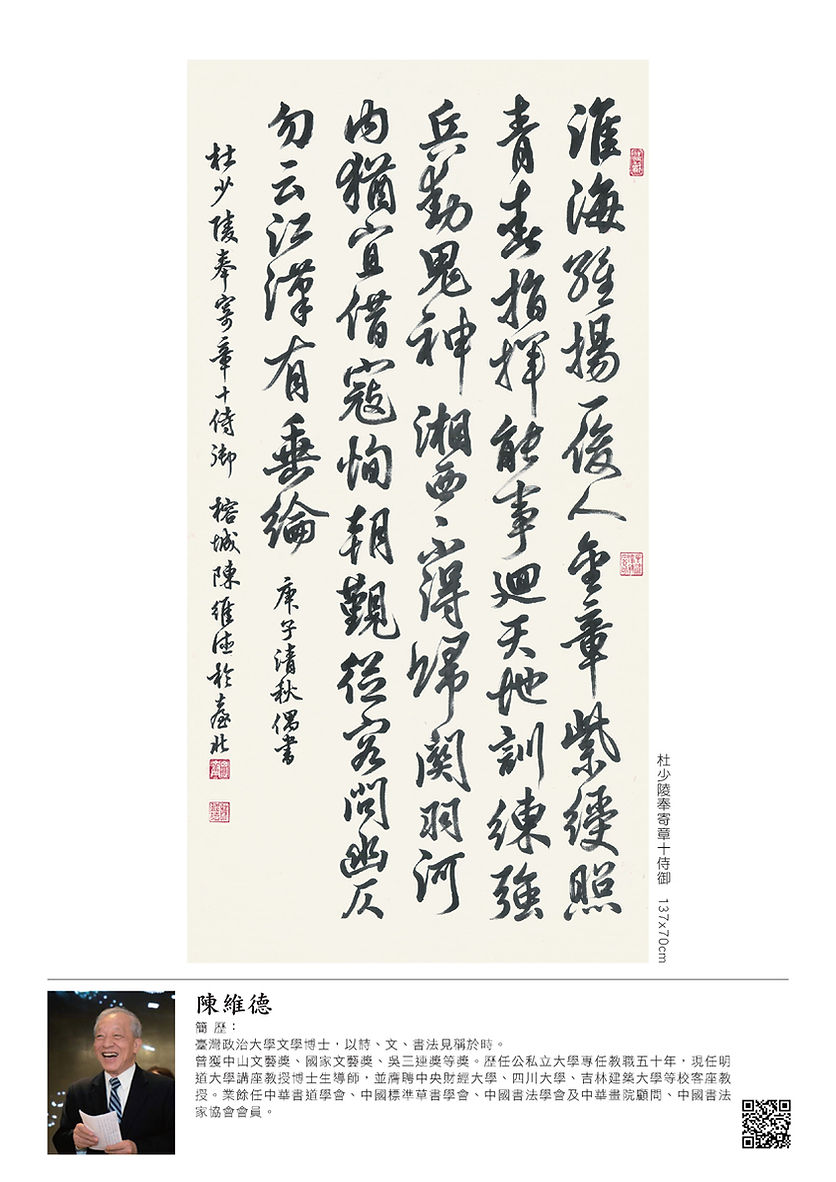 淮海維揚一俊人金章紫綬照
青春指揮能事迴天地訓練強
兵動鬼神湘西不得歸關羽河
內猶宜借寇恂朝覲從容問幽仄
勿云江漢有垂綸 庚子清秋偶書
杜少陵奉寄章十侍御 榕城陳維德於臺北
杜少陵奉寄章十侍御 137x70cm
陳維德
簡 歷：
臺灣政治大學文學博士，以詩、文、書法見稱於時。
曾獲中山文藝獎、國家文藝獎、吳三連獎等獎。歷任公私立大學專任教職五十年，現任明
道大學講座教授博士生導師，並膺聘中央財經大學、四川大學、吉林建築大學等校客座教
授。業餘任中華書道學會、中國標準草書學會、中國書法學會及中華畫院顧問、中國書法
家協會會員。